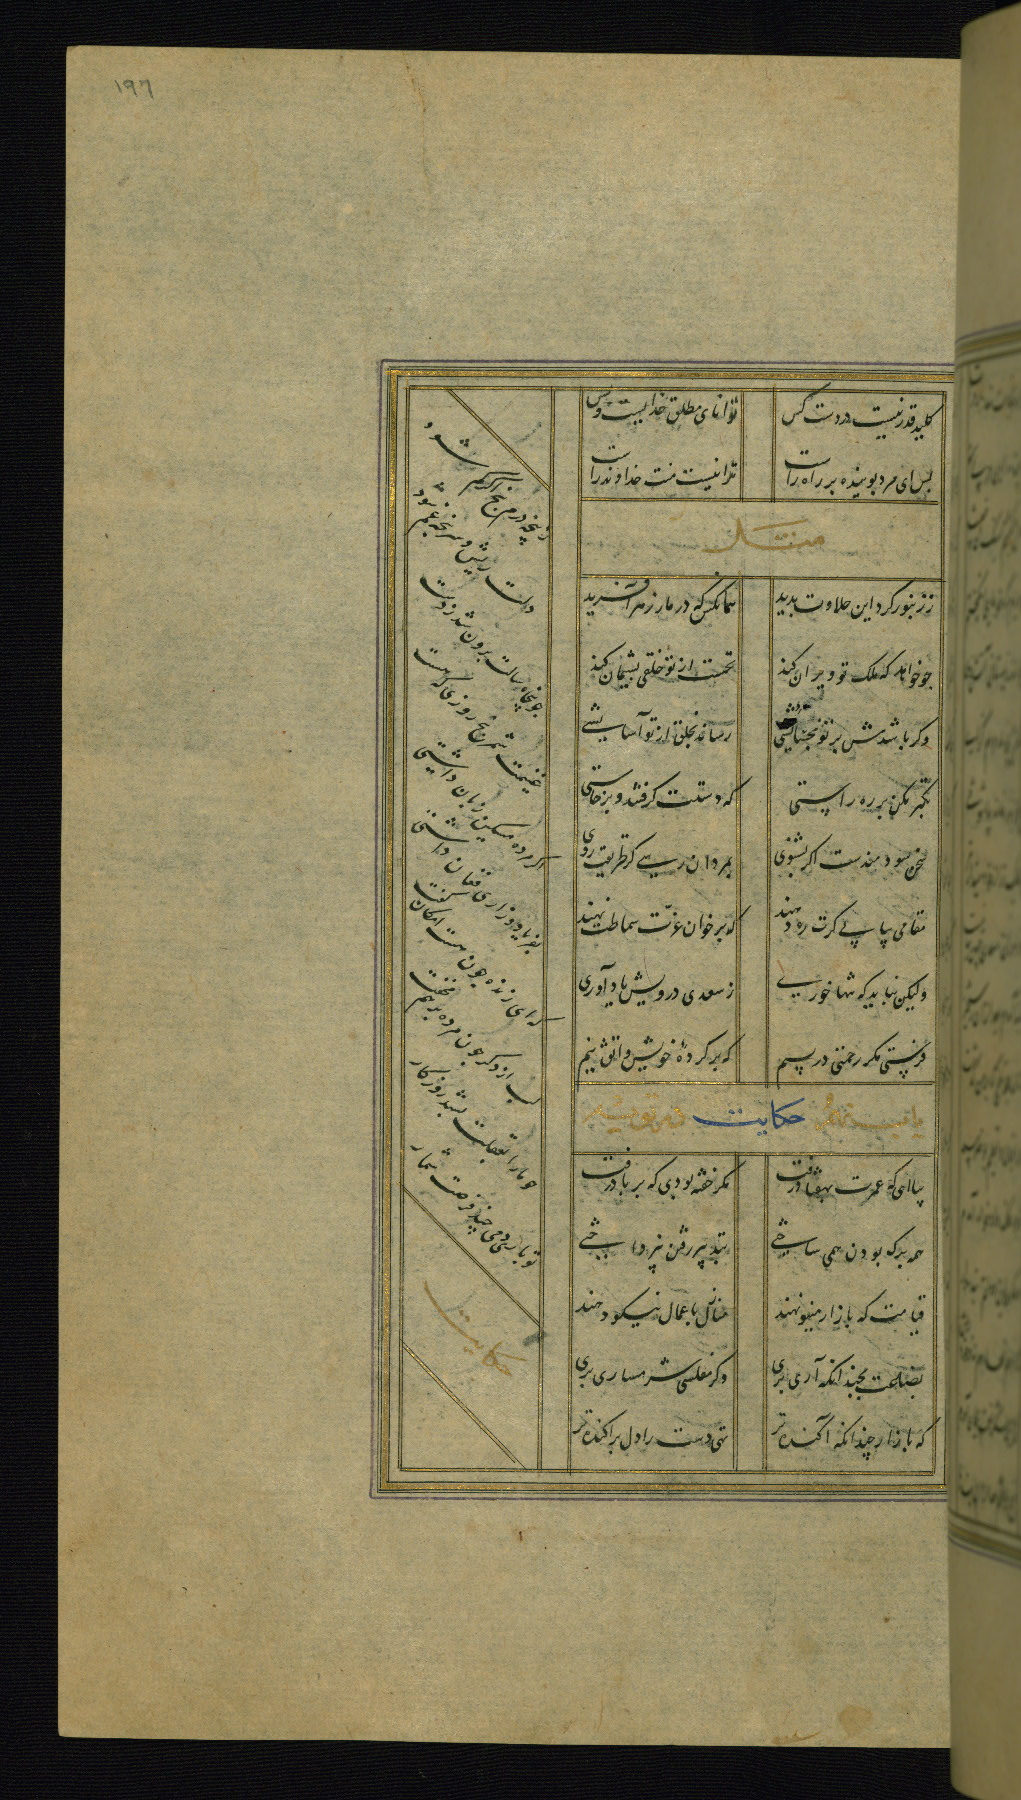 ۱۹۶
کلید قدر نیست در دست کس
توانای مطلق خدایست و بس
پس ای مرد پوینده بر راه راست
ترا نیست منت خداوند راست
مثل
ز زنبور کرد این حلاوت پدید
همانکس که در مار زهر آفرید
چو خواهد که ملک تو ویران کند
نخست از تو خلقی پشیمان کند
وکر باشدش بر تو بخشایشی
رساند بخلق از تو آسایشی
تکبر مکن بر ره راستی
که دستت کرفتند و برخاستی
سخن سودمندست اکر بشنوی
بمردان رسی کر طریقت روی
مقامی بیابی کرت ره دهند
که بر خوان عزت سماطت نهند
ولیکن نباید که تنها خوری
ز سعدی درویش یاد آوری
فرستی مکر رحمتی در پیم
که بر کردهٔ خویش واثق نیم
باب نهم حکایت در توبه
بیا ای که عمرت بهفتاد رفت
مکر خفته بودی که بر باد رفت
همه برک بودن همی ساختی
بتدبیر رفتن نپرداختی
قیامت که بازار مینو نهند
منازل باعمال نیکو دهند
بضاعت بچندانکه آری بری
وکر مفلسی شرمساری بری
که بازار چندانکه آکنده تر
تهی دست را دل پراکنده تر
ز پنجه درم پنج اکر کم شود
دلت ریش سرپنجهٔ غم شود
چو پنجاه سالت برون شد ز دست
غنیمت شمر پنج روزی که هست
اکر مرده مسکین زبان داشتی
بفریاد و زاری فغان داشتی
که ای زنده چون هست امکان کفت
لب از ذکر چون مرده بر هم مخفت
چو ما را بغفلت بشد روزکار
تو باری دمی چند فرصت شمار
حکایت